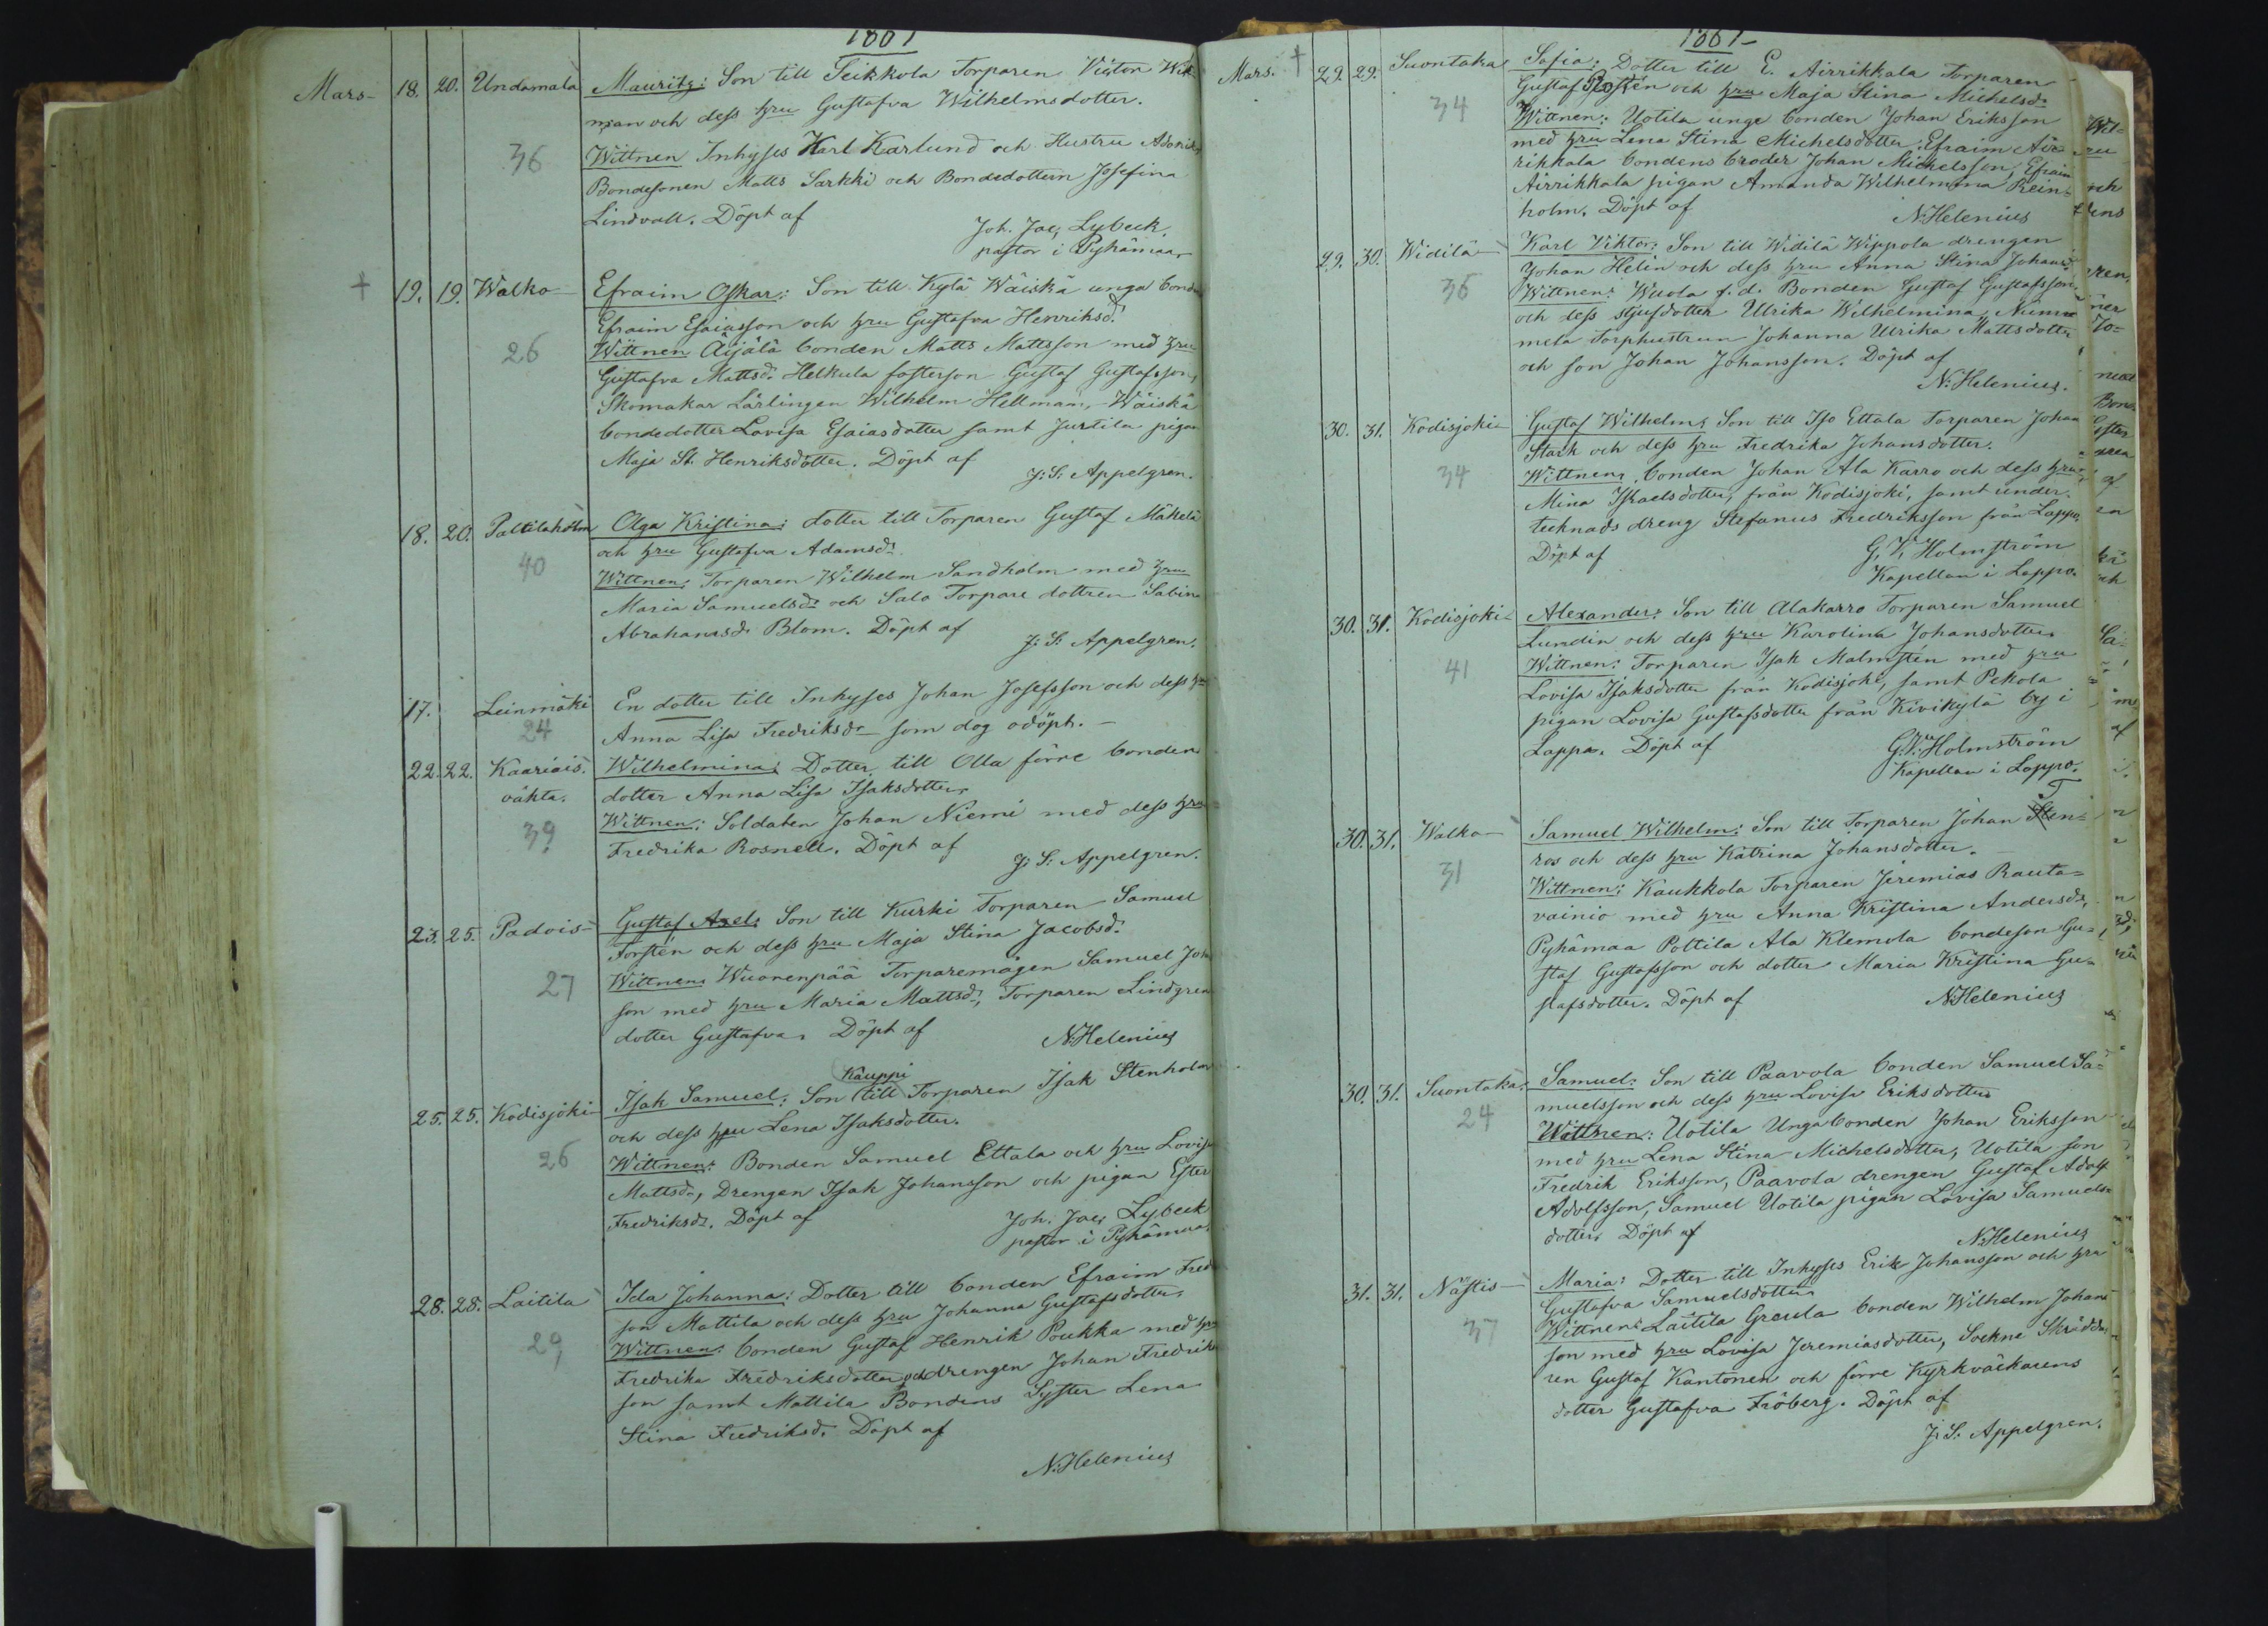 1861
Mars 18. 20. Undamala Mauritz: Son till Teikkola Torparen Victor Wik-
man och dess hru Gustafva Wilhelmsdotter.
36 Wittnen Inhyses Karl Karlund och Hustru
Bondesonen Matts Sarkki och Bondedottern Josefina
Lindvall. Döpt af
Joh. Jac. Lybeck.
pastor i Pyhämaa
+ 19. 19. Walko Efraim Oskar: Son till Kylä Wäiskä unga bond
Efraim Esaiasson och hru Gustafva Henriksd.
26 Wittnen Äijälä bonden Matts Mattsson med hru
Gustafva Mattsd. Helkula fosterson Gustaf Gustafsson,
Skomakar Lärlingen Wilhelm Hellman, Wäiskä
bondedotter Lovisa Esaiasdotter samt Juxtila pigan
Maja St. Henriksdotter. Döpt af
J: S: Appelgren.
18. 20. Paltilaholm Olga Kristina: dotter till Torparen Gustaf Mäkelä
och hru Gustafva Adamsd.
40 Wittnen: Torparen Wilhelm Sandholm med hru
Maria Samuelsd. och Salo Torpare dottren Sabina
Abrahamsd. Blom. Döpt af
J: S: Appelgren.
17. Leinmäki En dotter till Inhyses Johan Josefsson och dess hru
24 Anna Lisa Fredriksd. som dog odöpt. –
22. 22. Kaariais- Wilhelmina: Dotter till Olla förre bonden
vahta. dotter Anna Lisa Isaksdotter.
39 Wittnen: Soldaten Johan Niemi med dess hru
Fredrika Rosnell. Döpt af
J: S: Appelgren.
23. 25. Padois Gustaf Axel: Son till Kurki Torparen Samuel
Forstén och dess hru Maja Stina Jacobsd.
27 Wittnen: Wuorenpää Torparemågen Samuel Joh
son med hru Maria Mattsd., Torparen Lindgren
dotter Gustafva. Döpt af
N. Helenius
Kauppi
25. 25. Kodisjoki Isak Samuel: Son till Torparen Isak Stenholm
och dess hru Lena Isaksdotter.
26 Wittnen: Bonden Samuel Ettala och hru Lovisa
Mattsd., Drengen Isak Johansson och pigan Ester
Fredriksd. Döpt af
Joh. Jac. Lybeck
pastor i Pyhämaa.
28. 28. Laitila Ida Johanna: Dotter till bonden Efraim Fred
son Mattila och dess hru Johanna Gustafsdotter.
29 Wittnen: bonden Gustaf Henrik Poukka med hru
Fredrika Fredriksdotter, och drengen Johan Fredrik
son samt Mattila Bondens Syster Lena
Stina Fredriksd. Döpt af
N. Helenius
1861
Mars. + 29. 29. Suontaka Sofia: Dotter till E. Airikkala Torparen
Gustaf Rostén och hru Maja Stina Michelsd.
34 Wittnen: Uotila unge bonden Johan Eriksson
med hru Lena Stina Michelsdotter, Efraim Air-
rikkala bondens broder Johan Mickelsson, Efraim
Airrikkala pigan Amanda Wilhelmina Rein-
holm. Döpt af
N. Helenius
29. 30. Widilä Karl Viktor: Son till Widilä Wippola drengen
Johan Helin och dess hru Anna Stina Johansd.
36 Wittnen: Wuola f.d. Bonden Gustaf Gustafsson
och dess stjufdotter Ulrika Wilhelmina, Numm
mela Torphustrun Johanna Ulrika Mattsdotter
och son Johan Johansson. Döpt af
N. Helenius.
30. 31. Kodisjoki Gustaf Wilhelm: Son till Iso Ettala Torparen Johan
Stark och dess hru Fredrika Johansdotter.
34 Wittnen: bonden Johan Ala Karro och dess hru
Mina Israelsdotter, från Kodisjoki, samt under-
tecknads dreng Stefanus Fredriksson från Lappo,
Döpt af
G. V. Holmström
Kapellan i Lappo.
30. 31. Kodisjoki Alexander: Son till Alakarro Torparen Samuel
Lundin och dess hru Karolina Johansdotter.
41 Wittnen: Torparen Isak Malmstén med hru
Lovisa Isaksdotter från Kodisjoki, samt Pekola
pigan Lovisa Gustafsdotter från Kivikylä by i
Lappo. Döpt af
G. V. Holmström
Kapellan i Lappo.
30. 31. Walko Samuel Wilhelm: Son till Torparen Johan Sten-
ros och dess hru Katrina Johansdotter.
31 Wittnen: Kaukkola Torparen Jeremias Rauta-
vainio med hru Anna Kristina Andersd.,
Pyhämaa Pottila Ala Klemola bondeson Gu-
staf Gustafsson och dotter Maria Kristina Gu-
stafsdotter. Döpt af
N. Helenius
30. 31. Suontaka. Samuel: Son till Paavola bonden Samuel Sa-
muelsson och dess hru Lovisa Eriksdotter
24 Wittnen: Uotila Unga bonden Johan Eriksson
med hru Lena Stina Michelsdotter, Uotila son
Fredrik Eriksson, Paavola drengen Gustaf Adolf
Adolfsson, Samuel Uotila pigan Lovisa Samuels-
dotter. Döpt af
N. Helenius
31. 31. Nästis Maria: Dotter till Inhyses Erik Johansson och hru
Gustafva Samuelsdotter.
37 Wittnen: Laitila Greula bonden Wilhelm Johans
son med hru Lovisa Jeremiasdotter, Sockne Skrädda-
ren Gustaf Kantonen och förre Kyrkväckarens
dotter Gustafva Fröberg. Döpt af
J: S: Appelgren.